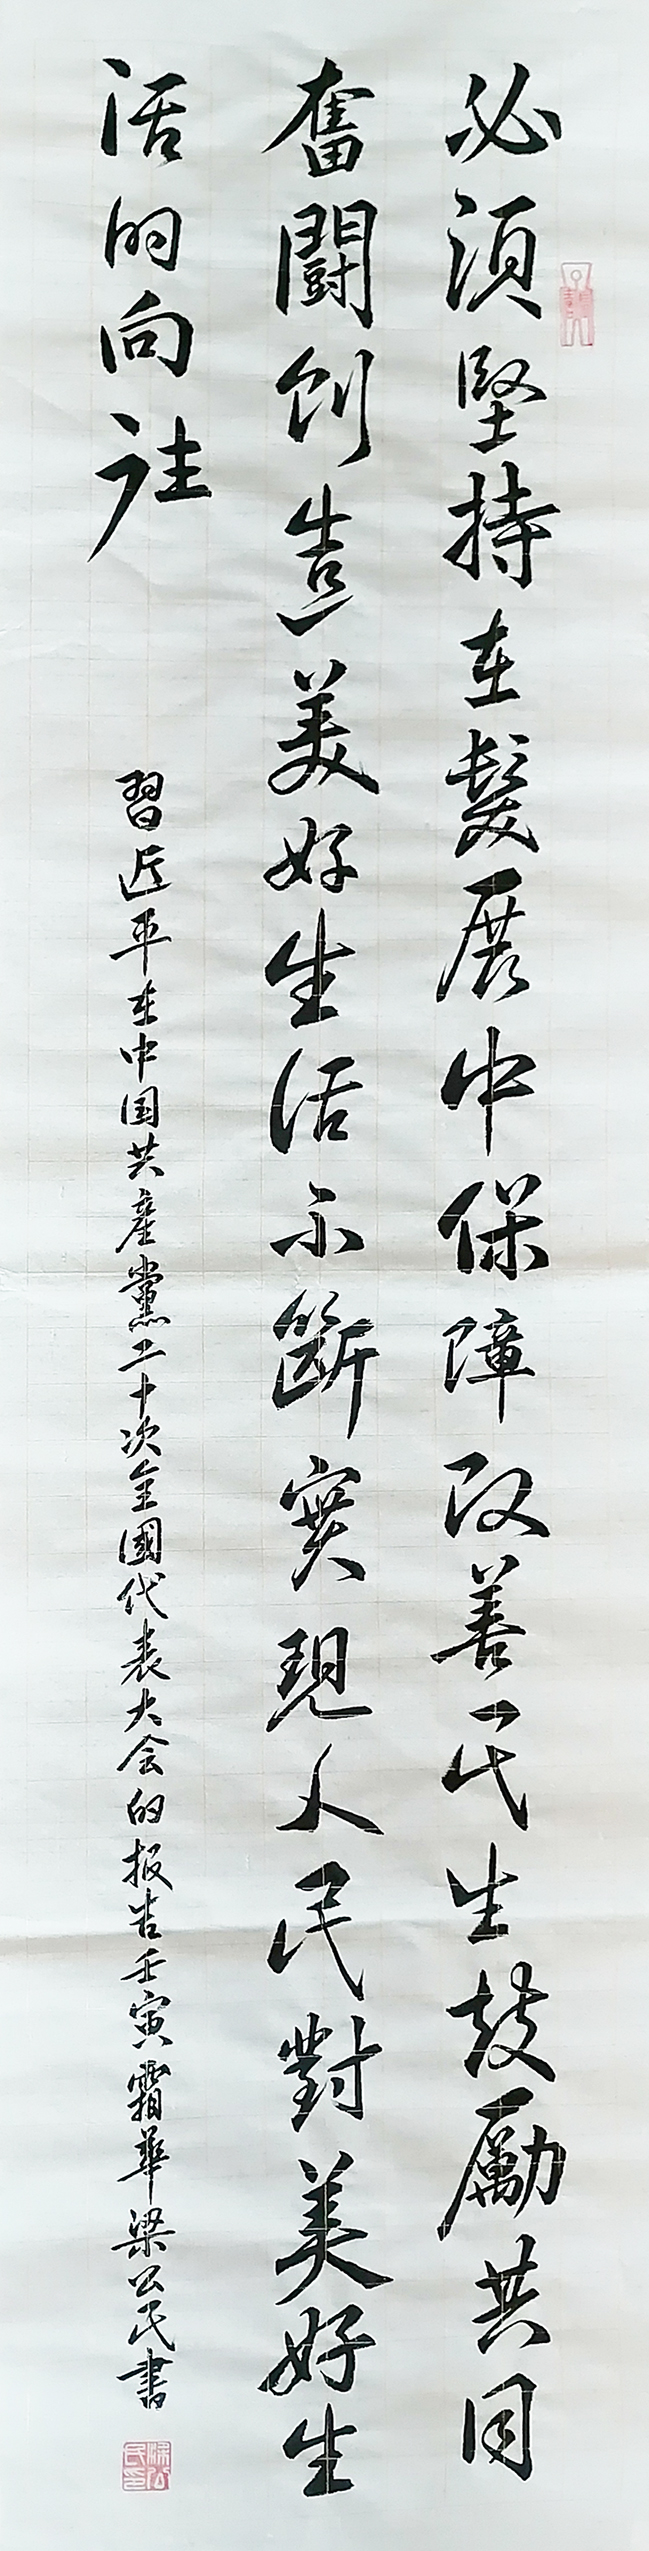 必須堅持在髮展中保障改善民生鼓勵共同
奮闘創造美好生活不斷實現人民對美好生
活的向往
習近平在中国共產黨二十次全國代表大会的报告壬寅霜華梁公民書
梁公民印